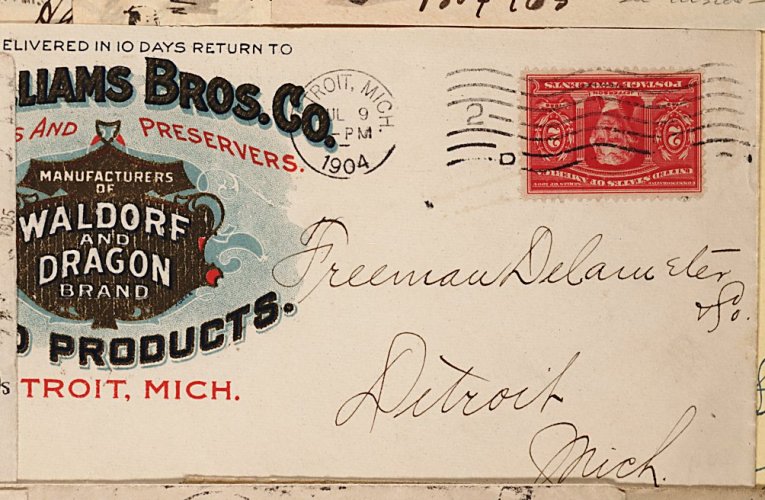 ELIVERED IN 10 DAYS RETURN TO
LLIAMS BROS. CO.
S AND PRESERVERS.
MANUFACTURERS
OF
WALDORF
AND
DRAGON
BRAND
D PRODUCTS.
TROIT, MICH.
TROIT, MICH.
UL 9
-PM
1904
2
D
UNITED STATES OF AMERICA
2 2
POSTAGE TWO CENTS
Freeman Delamater
& Co.
Detroit
Mich.